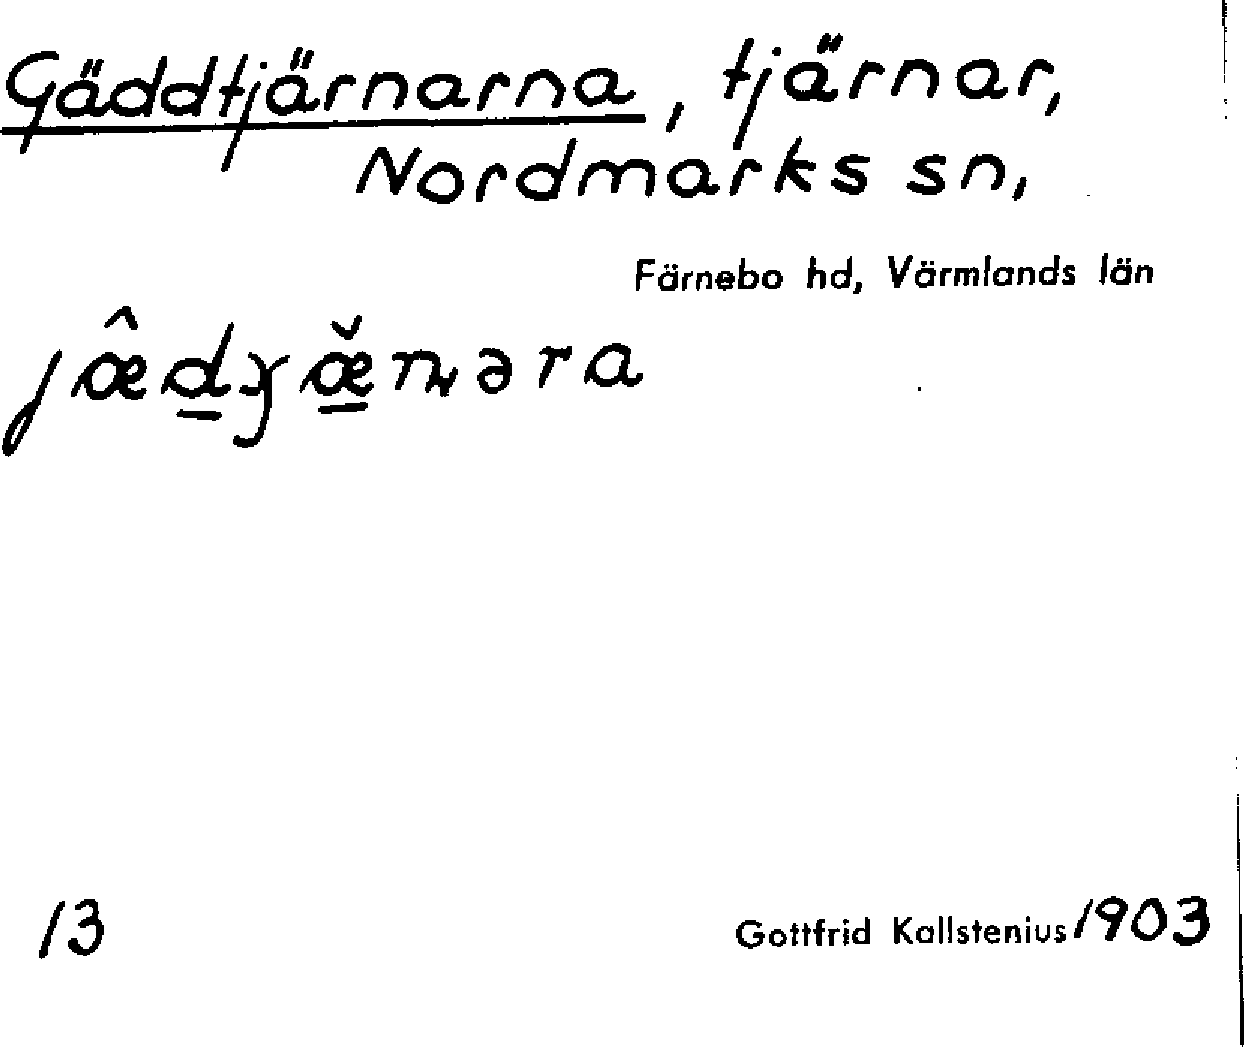 Gäddtjärnarna, tjärnar,
Nordmarks sn,
Färnebo hd, Värmlands län
13
Gottfrid Kallstenius 1903